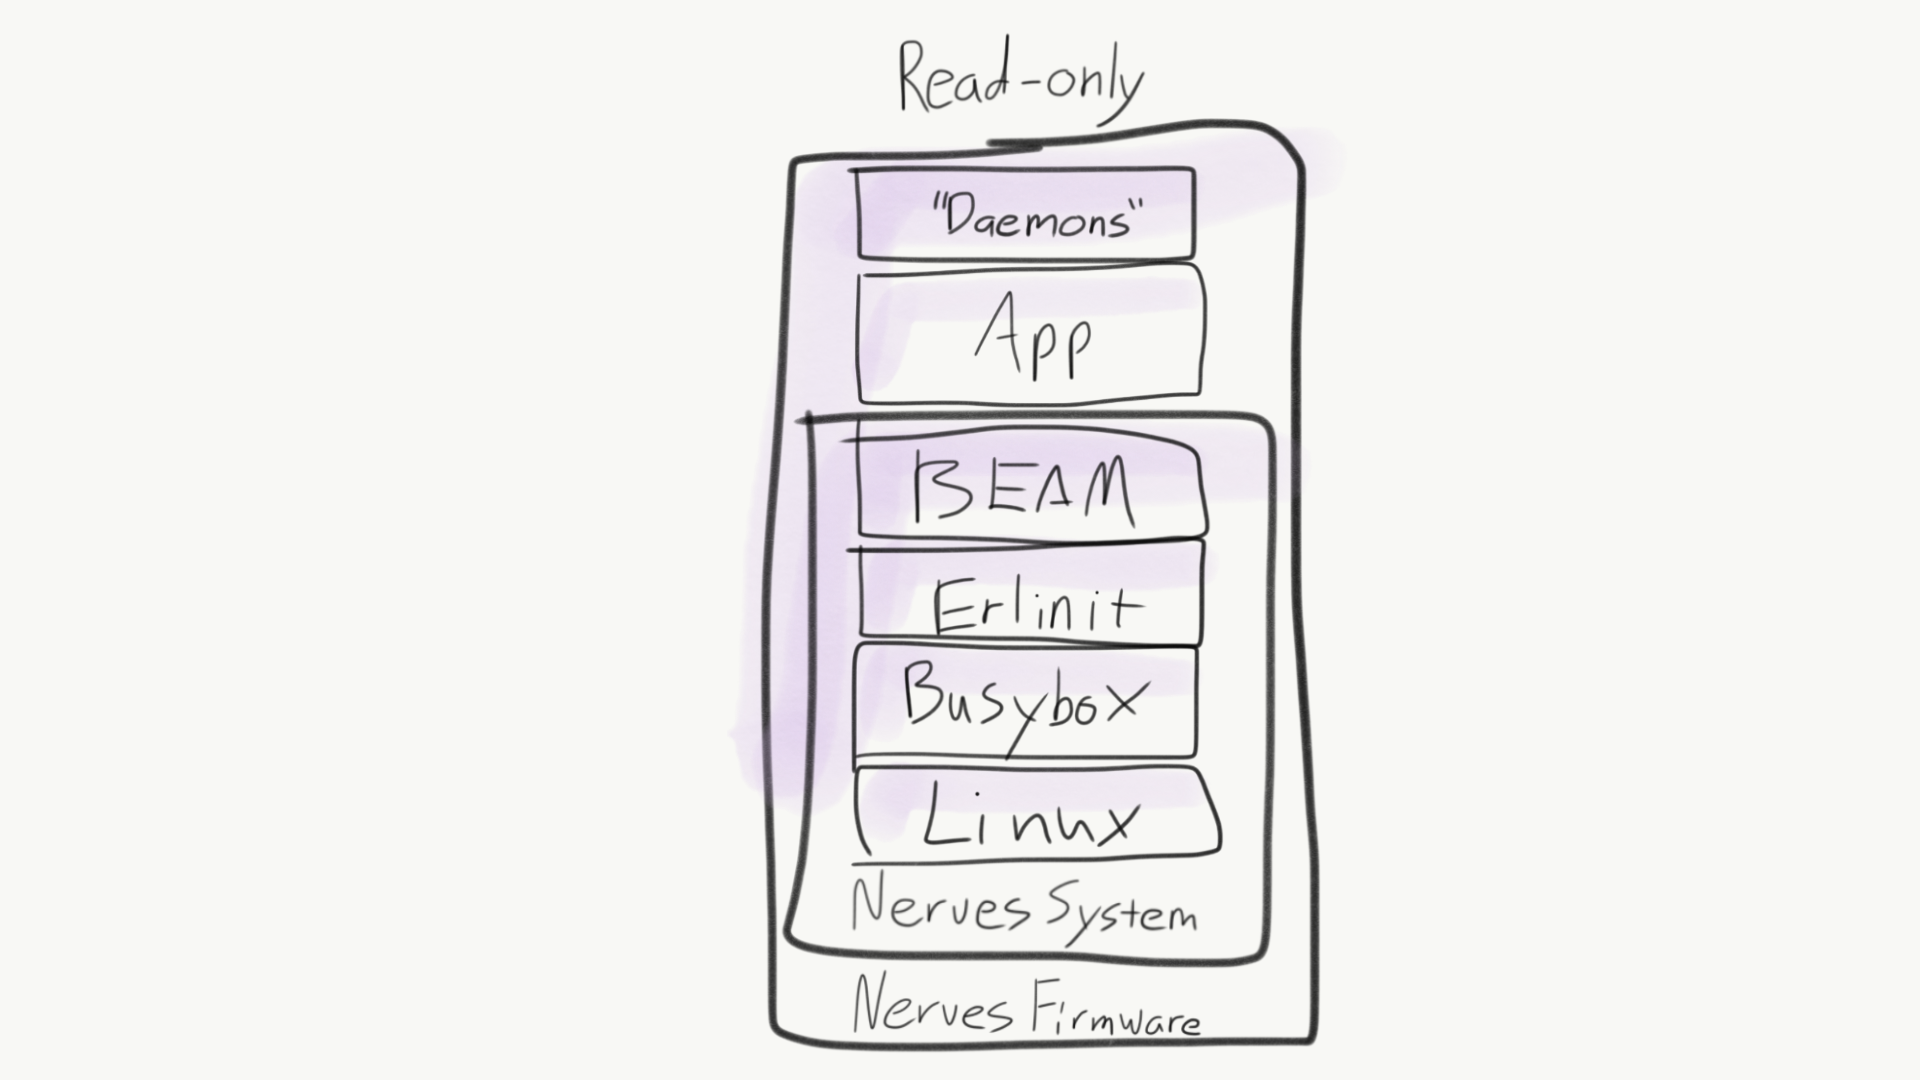 Read-only
"Daemons"
App
BEAM
Erlinit
Busybox
Linux
Nerves System
Nerves Firmware